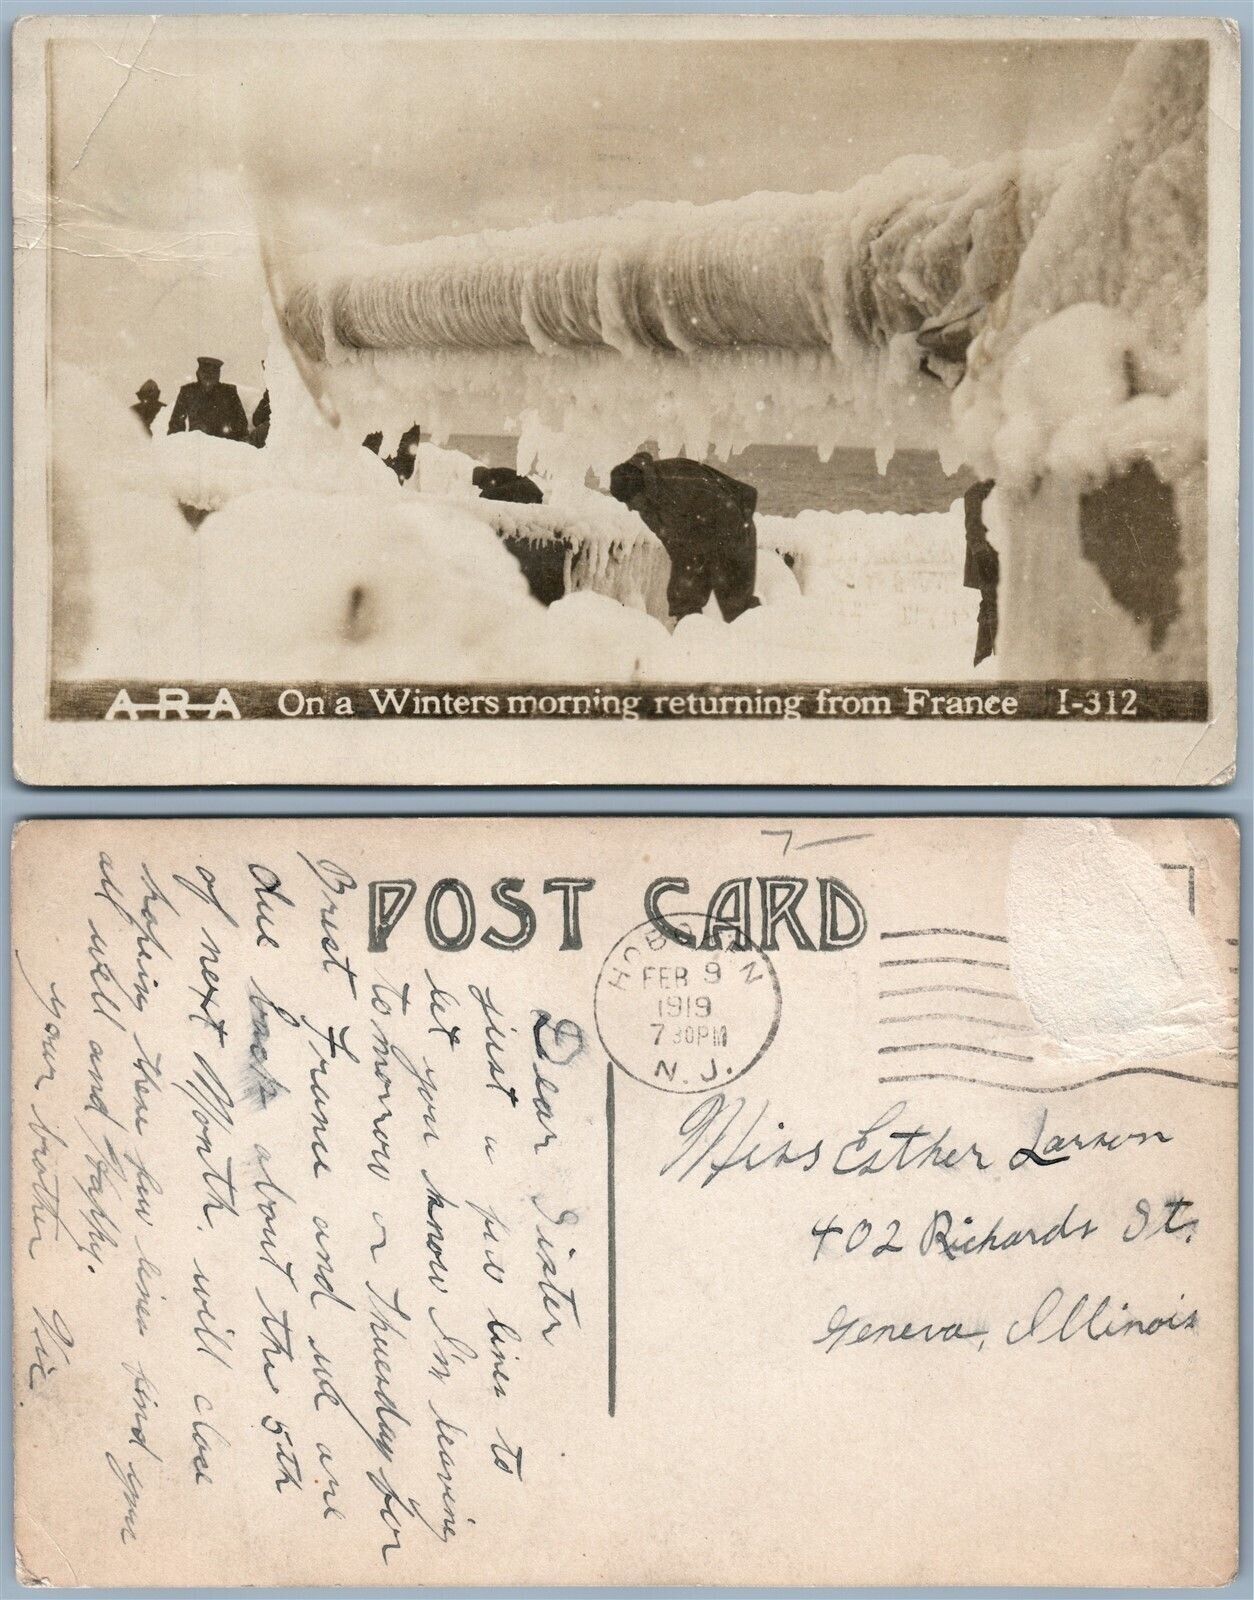 A-R-A On a Winters morning returning from France I-312
POST CARD
HOBOKEN
FEB 9
1919
7 30PM
N. J.
Dear Sister
just a few lines to
let you know I'm leaving
tomorrow or Thuesday for
Brest France and we are
due back about the 5th
of next Month. will close
hoping these few lines find you
all well and happy.
your brother Vic
Miss Esther Larson
402 Richards St.
Geneva, Illinois